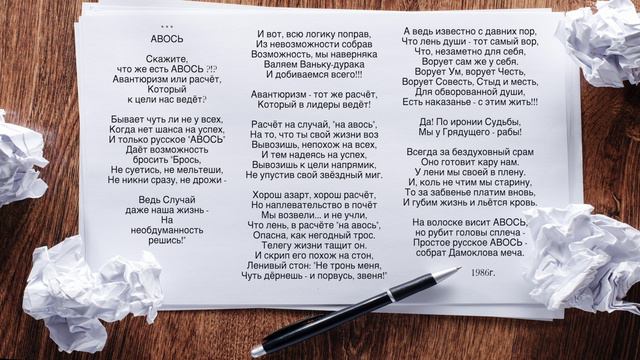 * * *
АВОСЬ
Скажите,
что же есть АВОСЬ ?!?
Авантюризм или расчёт,
Который
к цели нас ведёт?
Бывает чуть ли не у всех,
Когда нет шанса на успех,
И только русское 'АВОСЬ'
Даёт возможность
бросить 'Брось,
Не суетись, не мельтеши,
Не никни сразу, не дрожи -
Ведь Случай
даже наша жизнь -
На
необдуманность
решись!'
И вот, всю логику поправ,
Из невозможности собрав
Возможность, мы наверняка
Валяем Ваньку-дурака
И добиваемся всего!!!
Авантюризм - тот же расчёт,
Который в лидеры ведёт!
Расчёт на случай, 'на авось',
На то, что ты свой жизни воз
Вывозишь, непохож на всех,
И тем надеясь на успех,
Вывозишь к цели напрямик,
Не упустив свой звёздный миг.
Хорош азарт, хорош расчёт,
Но наплевательство в почёт
Мы возвели... и не учли,
Что лень, в расчёте 'на авось',
Опасна, как негодный трос.
Телегу жизни тащит он.
И скрип его похож на стон,
Ленивый стон: 'Не тронь меня,
Чуть дёрнешь - и порвусь, звеня!'
А ведь известно с давних пор,
Что лень души - тот самый вор,
Что, незаметно для себя,
Ворует сам же у себя.
Ворует Ум, ворует Честь,
Ворует Совесть, Стыд и месть,
Для обворованной души,
Есть наказанье - с этим жить!!!
Да! По иронии Судьбы,
Мы у Грядущего - рабы!
Всегда за бездуховный срам
Оно готовит кару нам.
У лени мы своей в плену.
И, коль не чтим мы старину,
То за забвенье платим вновь,
И губим жизнь и льётся кровь.
На волоске висит АВОСЬ,
но рубит головы сплеча -
Простое русское АВОСЬ -
собрат Дамоклова меча.
1986г.